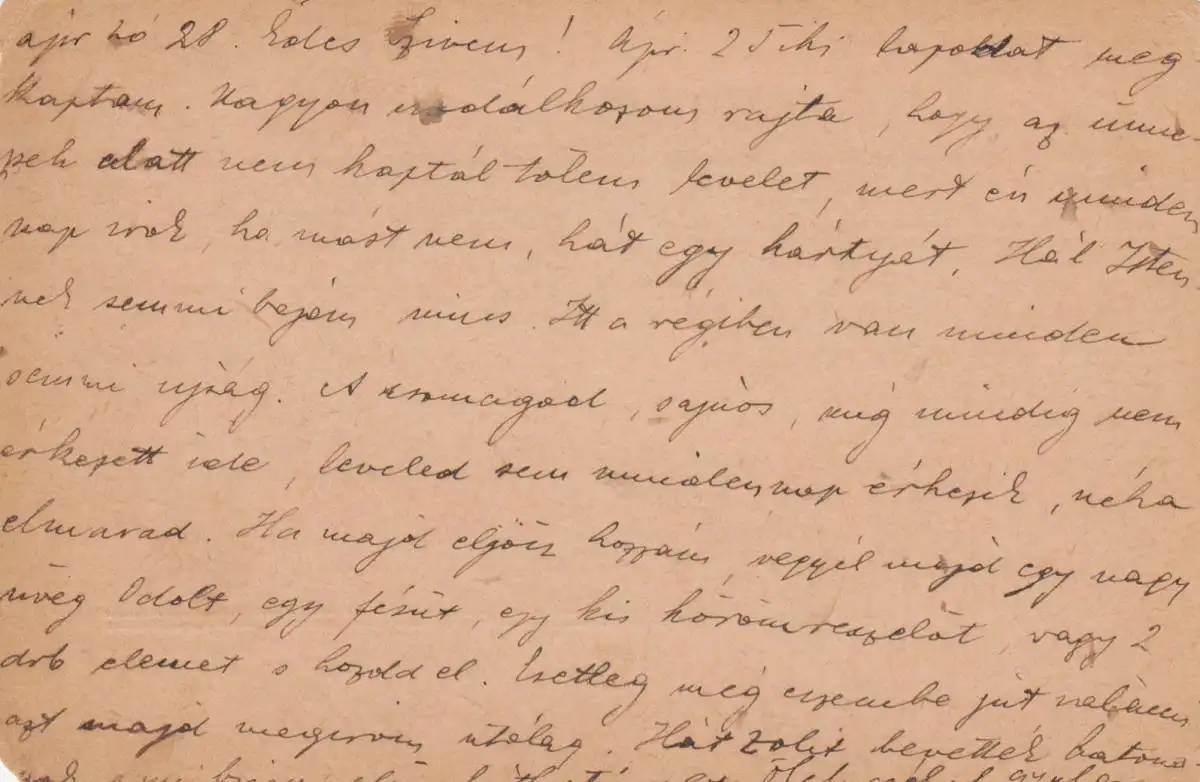 ápr hó 28. Édes Szivem! Ápr. 25 iki lapodat meg-
kaptam. Nagyon csodálkozom rajta, hogy az ünne-
pek alatt nem kaptál tőlem levelet, mert én minden
nap irok, ha mást nem, hát egy kártyát. Hál Isten
nek semmi bajom nincs. Itt a régiben van minden
semmi ujság. A csomagod, sajnos, még mindig nem
érkezett ide, leveled sem mindennap érkezik, néha
elmarad. Ha majd eljösz hozzám, vegyél majd egy nagy
üveg Odolt, egy fésüt, egy kis körömreszelőt, vagy 2
drb elemet s hozdd el. Esetleg még eszembe jut valami
azt majd megirom utólag. Hát Zolit bevették katona
nak